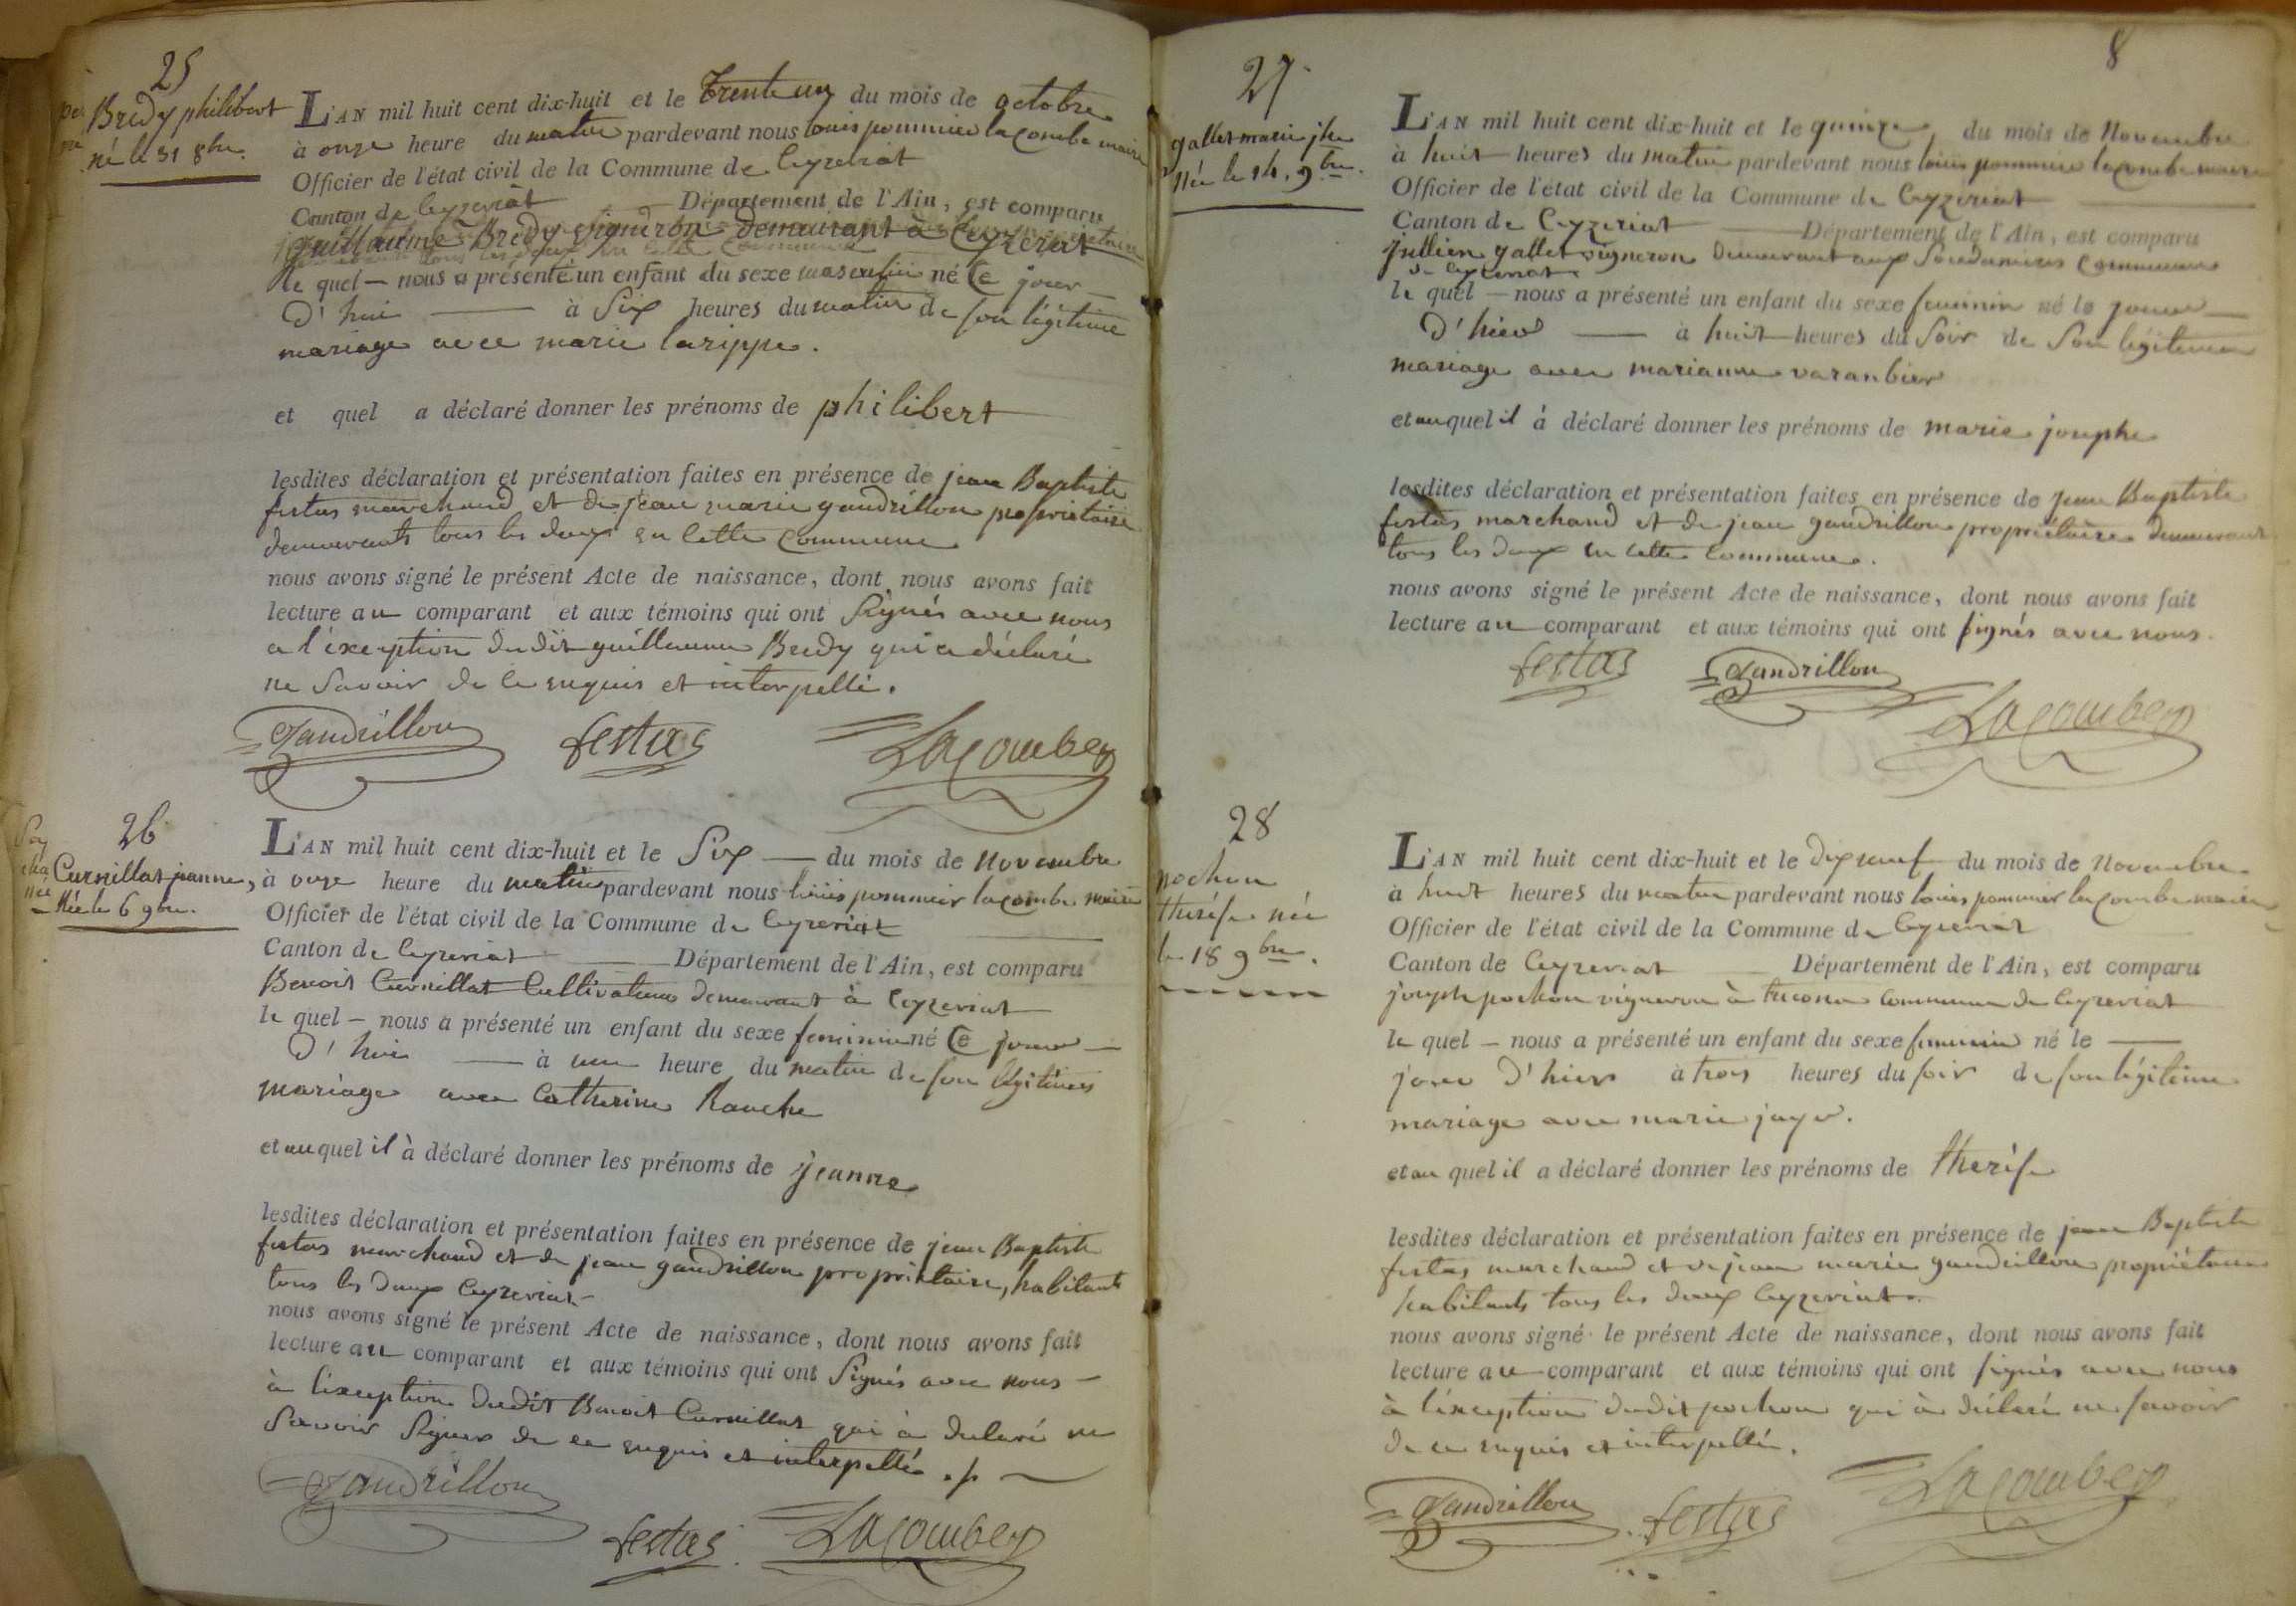 25
Bredy philibert
né le 31 8bre.
L'AN mil huit cent dix-huit et le trente un du mois de octobre
à onze heure du matin pardevant nous louis pommier lacombe maire
Officier de l'état civil de la Commune de Ceyzeriat
Canton de Ceyzeriat Département de l'Ain, est comparu
guillaume Bredy vigneron demeurant à Ceyzeriat
le quel – nous a présenté un enfant du sexe masculin né Ce jour
d'hui — à six heures du matin de son légitime
mariage avec marie larippe.
et quel a déclaré donner les prénoms de philibert
lesdites déclaration et présentation faites en présence de jean Baptiste
festas marchand et de jean marie gandrillon propriétaire
demeurants tous les deux en cette commune
nous avons signé le présent Acte de naissance, dont nous avons fait
lecture au comparant et aux témoins qui ont signés avec nous
a l'éxception dudit guillaume Bredy qui a déclaré
ne savoir de ce enquis et interpellé.
Gandrillon festas Lacombe
26
Curnillat jeanne,
Née le 6 9bre.
L'AN mil huit cent dix-huit et le Six — du mois de Novembre
à onze heure du matin pardevant nous louis pommier lacombe maire
Officier de l'état civil de la Commune de Ceyzeriat
Canton de Ceyzeriat — Département de l'Ain, est comparu
Benoit Curnillat Cultivateur demeurant à Ceyzeriat
le quel – nous a présenté un enfant du sexe feminin né Ce jour —
d'hui — à une heure du matin de son légitime
mariage avec Catherine
et au quel il à déclaré donner les prénoms de jeanne
lesdites déclaration et présentation faites en présence de jean Baptiste
festas marchand et de jean gandrillon propriétaire, habitants
tous les deux Ceyzeriat
nous avons signé le présent Acte de naissance, dont nous avons fait
lecture au comparant et aux témoins qui ont signés avec nous –
à l'éxception dudit Benoit Curnillat qui à déclaré ne
savoir signer de ce enquis et interpellé.
Gandrillon
festas. Lacombe
8
27
gallet marie jhe
Née le 14. 9bre.
L'AN mil huit cent dix-huit et le quinze du mois de Novembre
à huit heures du matin pardevant nous louis pommier lacombe maire
Officier de l'état civil de la Commune de Ceyzeriat
Canton de Ceyzeriat Département de l'Ain, est comparu
jullien gallet vigneron demeurant aux commune
de Ceyzeriat
le quel – nous a présenté un enfant du sexe feminin né le jour —
d'hier — à huit heures du soir de son légitime
mariage avec marianne varanbier
et au quel il à déclaré donner les prénoms de marie josephe
lesdites déclaration et présentation faites en présence de jean Baptiste
festas marchand et de jean gandrillon propriétaire demeurant
tous les deux en cette commune.
nous avons signé le présent Acte de naissance, dont nous avons fait
lecture au comparant et aux témoins qui ont signés avec nous.
festas Gandrillon
Lacombe
28
pochon
therése née
le 18 9bre.
L'AN mil huit cent dix-huit et le dix neuf du mois de Novembre
à huit heures du matin pardevant nous louis pommier lacombe maire
Officier de l'état civil de la Commune de Ceyzeriat
Canton de Ceyzeriat Département de l'Ain, est comparu
joseph pochon vigneron à commune de Ceyzeriat
le quel – nous a présenté un enfant du sexe feminin né le —
jour d'hier à trois heures du soir de son légitime
mariage avec marie jayr.
et au quel il a déclaré donner les prénoms de therése
lesdites déclaration et présentation faites en présence de jean Baptiste
festas marchand et de jean marie gandrillon propriétaire
habitants tous les deux Ceyzeriat.
nous avons signé le présent Acte de naissance, dont nous avons fait
lecture au comparant et aux témoins qui ont signés avec nous
à l'éxception dudit pochon qui à déclaré ne savoir
de ce enquis et interpellé.
Gandrillon festas Lacombe